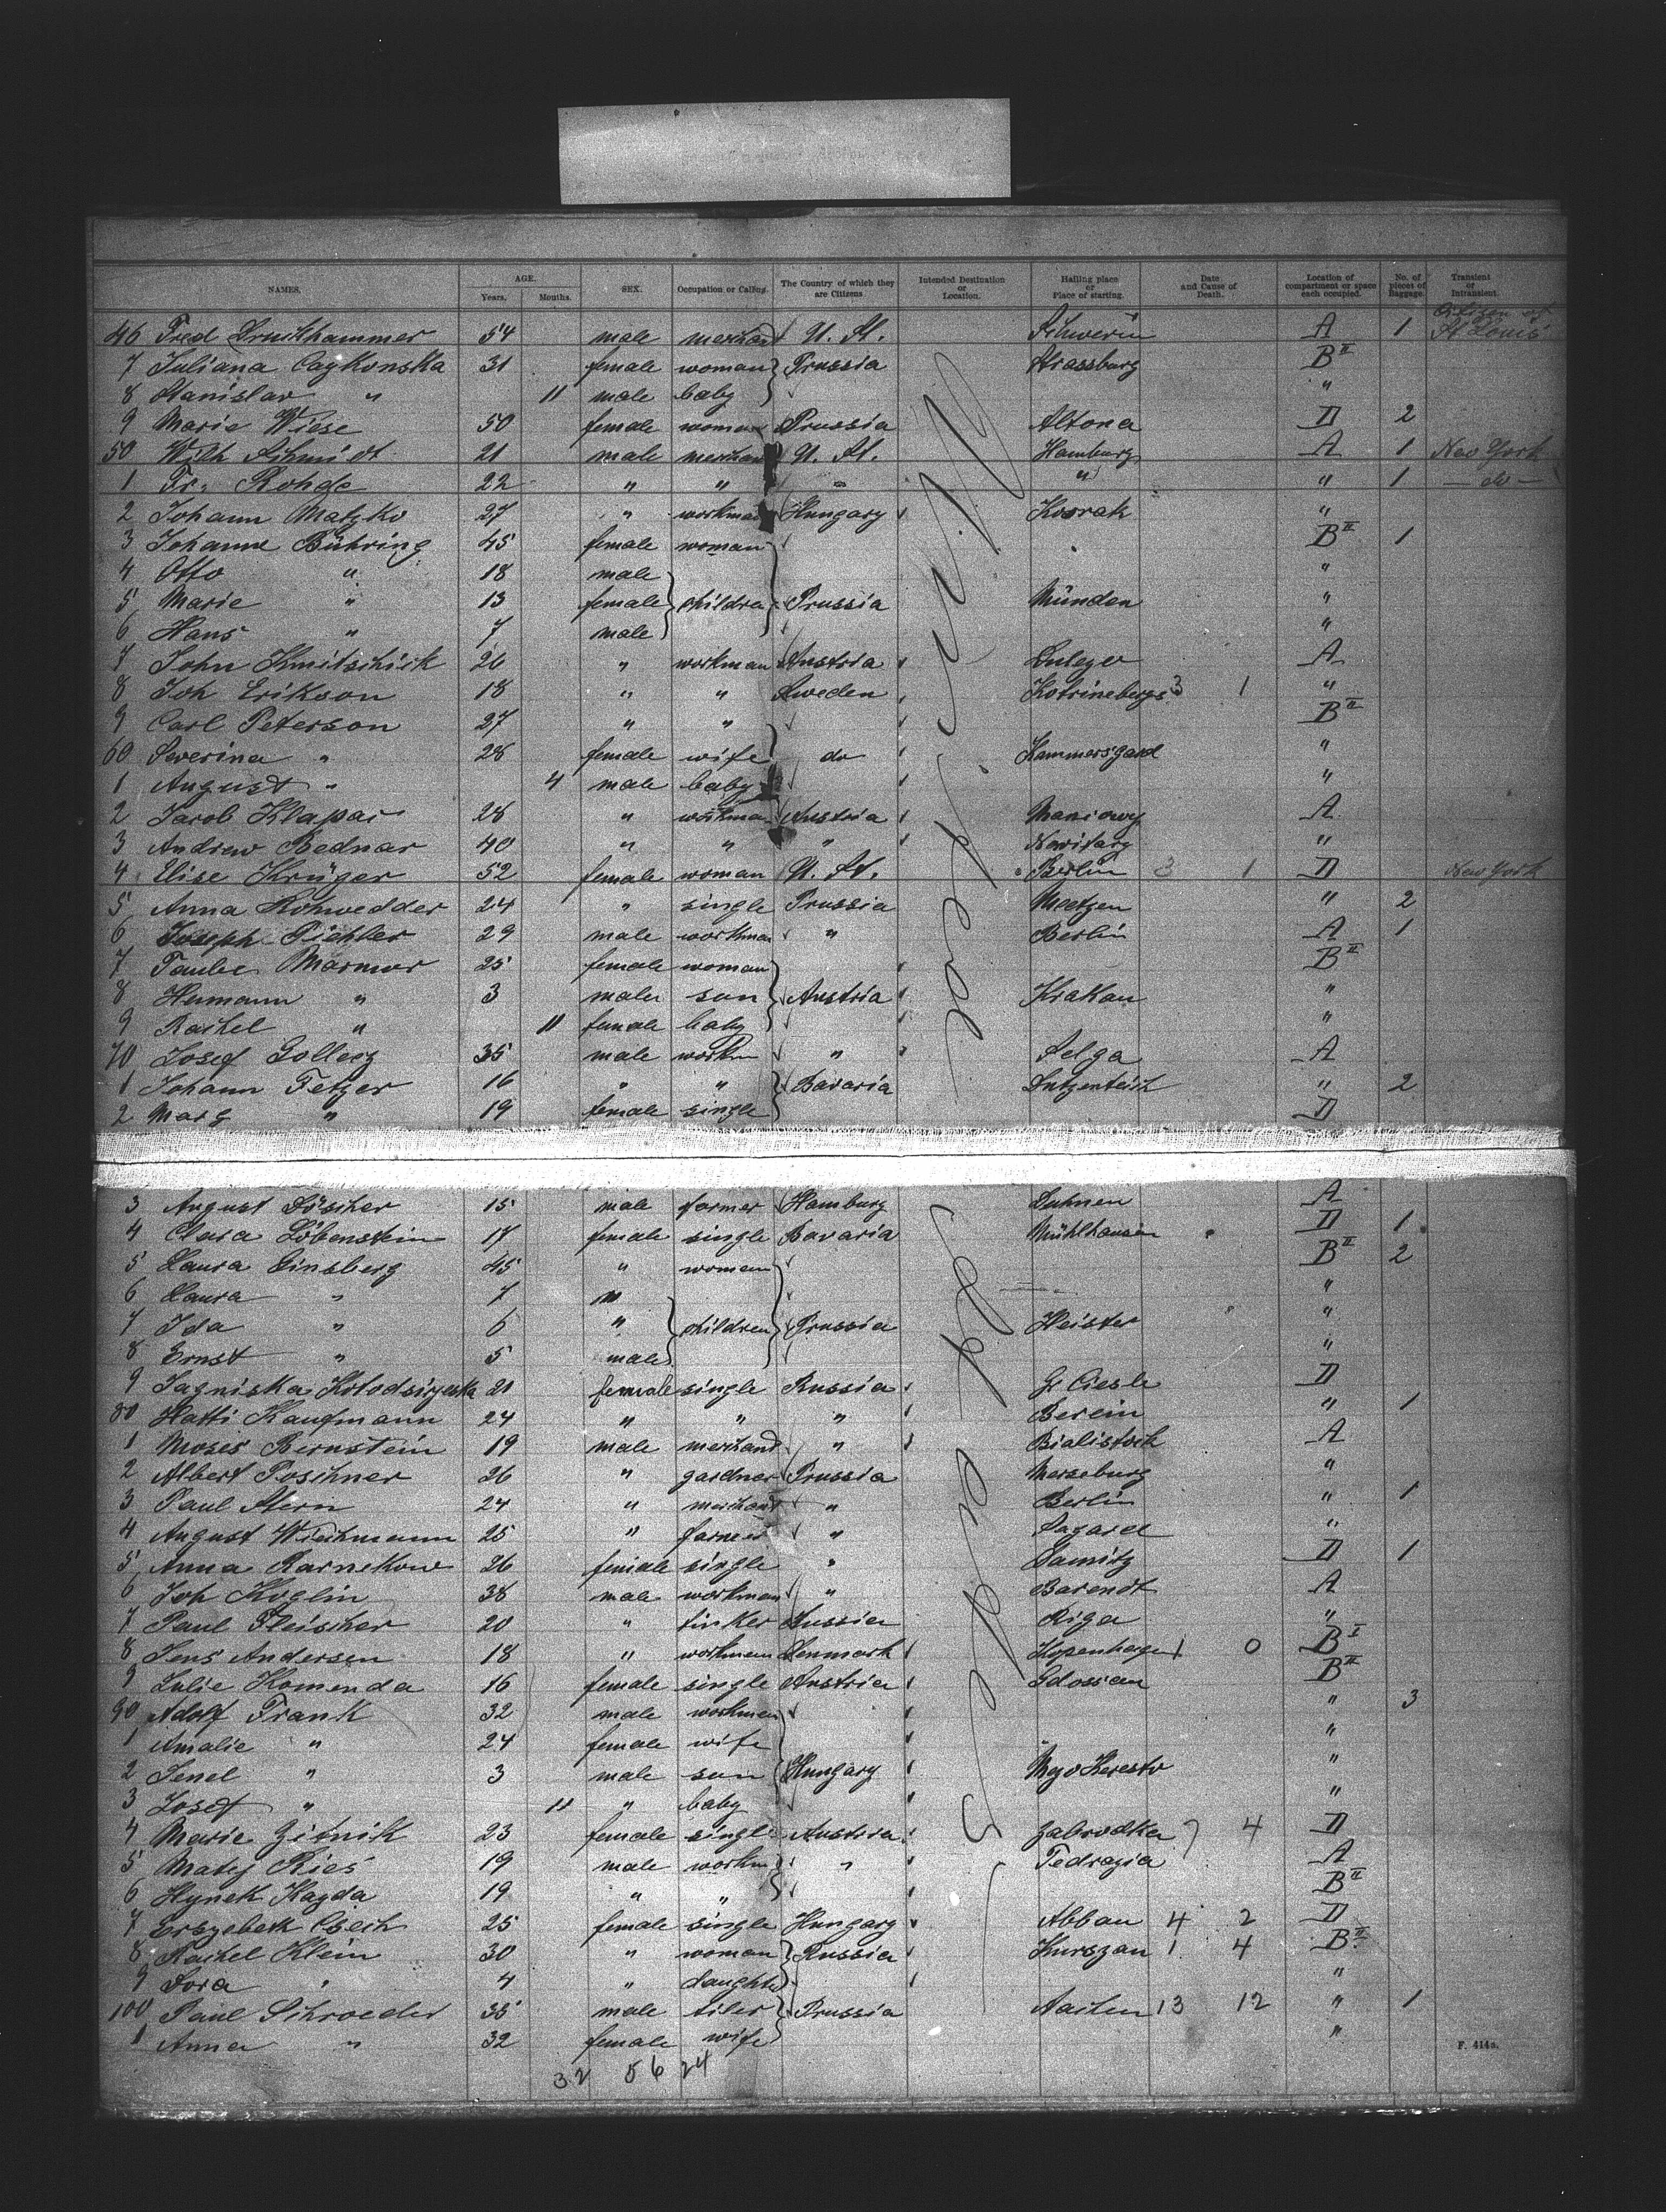 NAMES. AGE. Years. Months. SEX. Occupation or Calling. The Country of which they are Citizens. Intended Destination or Location. Hailing place or Place of starting. Date and Cause of Death. Location of compartment or space each occupied. No. of pieces of Baggage. Transient or Intransient.
46 Fred 54 male merchant U. St. Schwerin A 1 Citizen of St Louis
7 Juliana Caykonska 31 female woman Prussia Strassburg B II
8 Stanislav " 11 male baby "
9 Marie Wiese 50 female woman Prussia Altona D 2
50 Wilh Schmidt 21 male merchant U. St. Hamburg A 1 New York
1 Fr. Rohde 22 " " " " " 1 - do -
2 Johann Matzko 27 " workman Hungary Kosrak "
3 Johanne Bühring 45 female woman B II 1
4 Otto " 18 male "
5 Marie " 13 female children Prussia Münden "
6 Hans " 7 male "
7 John Kmitschick 26 " workman Austria A
8 Joh Erikson 18 " " Sweden Kotrinebergs 3 1 "
9 Carl Peterson 27 " " B II
60 Severina " 28 female wife do Hammersgard "
1 August " 4 male baby "
2 Jacob Klapar 28 " workman Austria Maniowy A
3 Andrew Bednar 40 " " " Novitarg "
4 Elise Krüger 52 female woman U. St. Berlin 3 1 D New York
5 Anna Rohwedder 24 " single Prussia Meetzen " 2
6 Joseph Pichler 29 male workman " Berlin A 1
7 Marmor 25 female woman B II
8 Hermann " 3 male son Austria Krakau "
9 Rachel " 11 female baby "
70 Josef Gollecz 35 male workm " Selga A
1 Johann Fetzer 16 " " Bavaria Lutzenteich " 2
2 Marg " 19 female single D
3 August Döscher 15 male farmer Hamburg Duhnen A
4 Clara Löbenstein 17 female single Bavaria Mühlhausen D 1
5 Laura Ginsberg 45 " woman B II 2
6 Laura " 7 "
7 Ida " 6 " children Prussia Heister "
8 Ernst " 5 male "
9 Jagniska 21 female single Russia Gr Ciesle D
80 Hatti Kaufmann 24 " " " Berein " 1
1 Moses Bernstein 19 male merchand " Bialistock A
2 Albert Poschner 26 " gardner Prussia Merseburg "
3 Paul Stern 24 " merchant " Berlin " 1
4 August Wiechmann 25 " farmer " Sagard "
5 Anna Karnekow 26 female single " Samitz D 1
6 Joh Koglin 38 male workman " Barendt A
7 Paul Fleischer 20 " tinker Russia Riga "
8 Jens Andersen 18 " workman Denmark Kopenhagen 1 0 B I
9 Julie Komenda 16 female single Austria B II
90 Adolf Frank 32 male workman " 3
1 Amalie " 24 female wife "
2 Jenel " 3 male son Hungary "
3 Josef " 11 " baby "
4 Marie Zitnik 23 female single Austria Zabrodka 7 4 D
5 Matej Ries 19 male workm " Tedrazia A
6 Hynek Kagda 19 " " B II
7 Erszebeth Csech 25 female single Hungary Abbau 4 2 D
8 Rachel Klein 30 " woman Russia Kurszan 1 4 B II
9 Dora " 4 " daughter "
100 Paul Schroeder 35 male tiler Prussia Aachen 13 12 " 1
1 Anna " 32 female wife "
32 56 24
F. 414a.